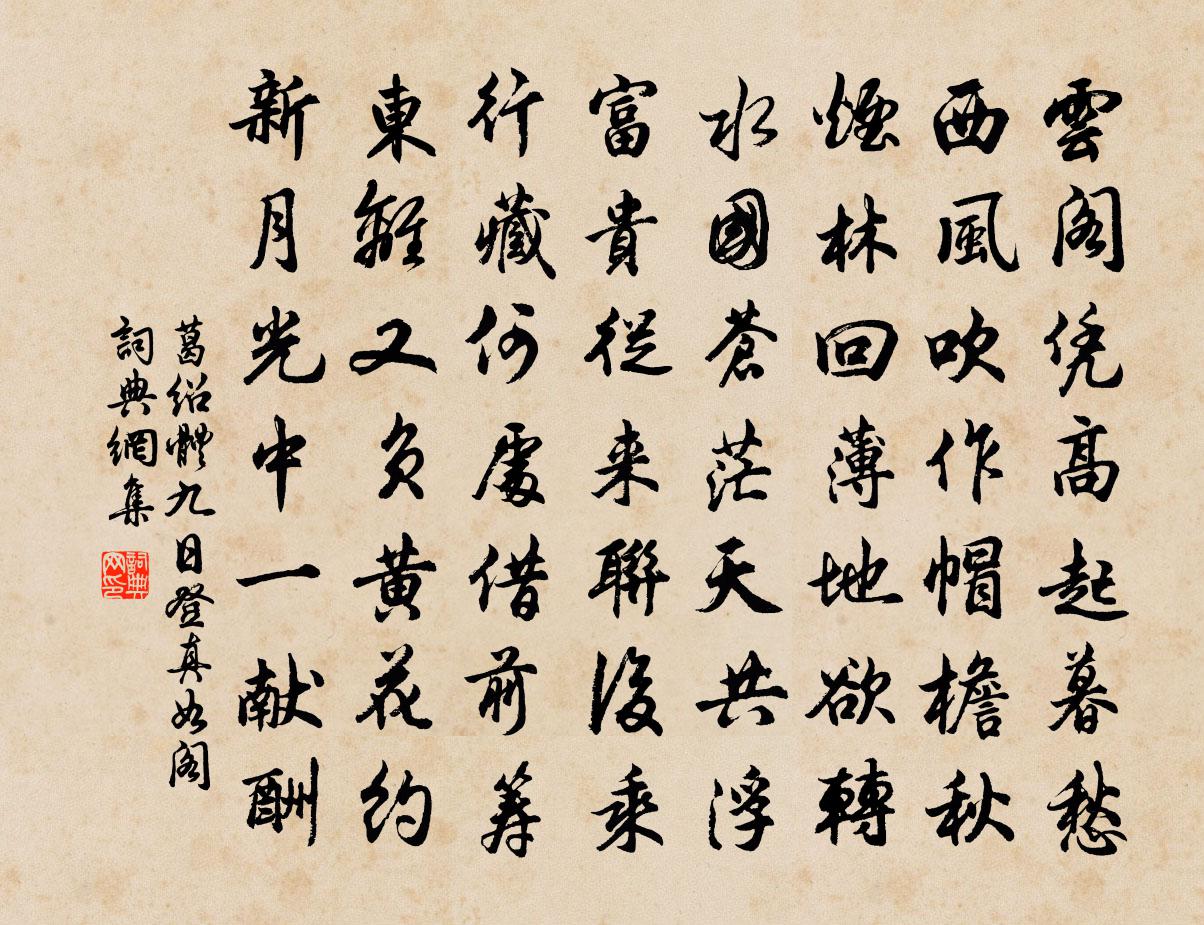 雲閣凭高起暮愁
西風吹作帽檐秋
煙林回薄地欲轉
水國蒼茫天共浮
富貴從来聯後乘
行藏何處借前筹
東籬又負黃花約
新月光中一献酬
葛绍體九日登真如阁
詞典網集
詞典网印